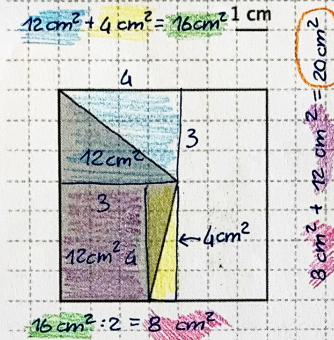 12cm² + 4 cm² = 16cm² 1 cm
4
3
12cm²
3
12cm² 4
←4cm²
16 cm² : 2 = 8 cm²
8 cm² + 12 cm² = 20cm²